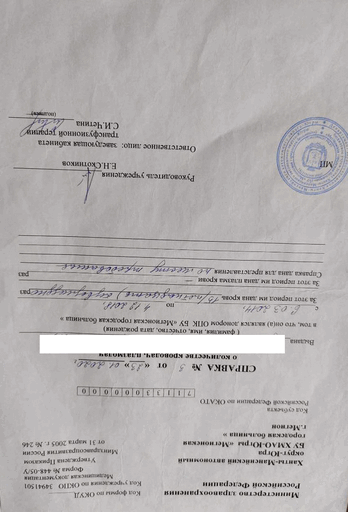 Министерство здравоохранения
Российской Федерации
Ханты-Мансийский автономный
округ-Югра
БУ ХМАО-Югры «Мегионская
городская больница»
г. Мегион
Код формы по ОКУД
Код учреждения по ОКПО 34941501
Медицинская документация
Форма № 448-05/у
Утверждена Приказом
Минздравсоцразвития России
от 31 марта 2005 г. № 246
Код субъекта
Российской Федерации по ОКАТО
7 1 1 3 3 0 0 0 0 0 0
СПРАВКА № 5 от «23» 01 2020г.
о количестве кроводач, плазмодач
Выдана
( фамилия, имя, отчество, дата рождения)
в том, что он(а) являлся донором ОПК БУ «Мегионская городская больница »
с 03.2014 по 4.12.2018.
За этот период им дана кровь 10 раз
За этот период им дана плазма крови — раз
Справка дана для представления по месту требования
Руководитель учреждения
Е.Н.Скотников
Ответственное лицо: заведующая кабинета
трансфузионной терапии
С.И.Четина
(подпись)
МП